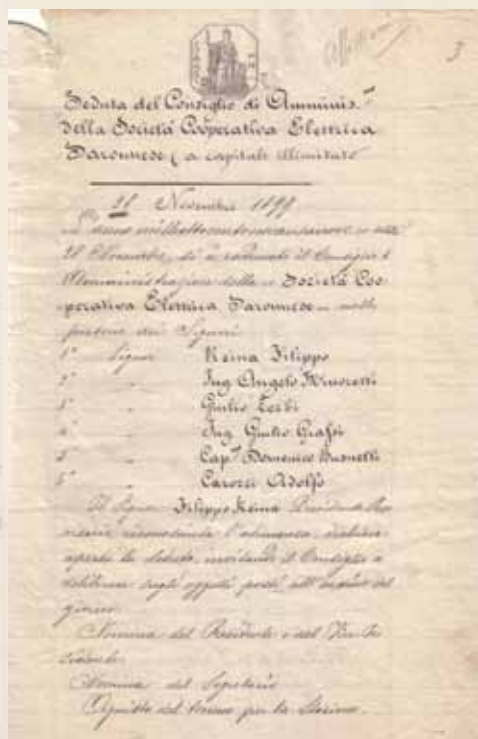 3
Seduta del Consiglio di Amminis.ne
della Società Cooperativa Elettrica
Saronnese (a capitale illimitato
28 Novembre 1899
anno milleottocentonovantanove
28 Novembre, si è radunato il Consiglio d'
Amministrazione della Società Coo-
perativa Elettrica Saronnese nelle
persone dei Signori
1° Signor Reina Filippo
2° " Ing Angelo
3° " Giulio Zerbi
4° " Ing. Giulio Grassi
5° " Cap.no Domenico Busnelli
6° " Carozzi Adolfo
Il Signor Filippo Reina Presidente
riconosciuta l'adunanza, dichiara
aperta la seduta, invitando il Consiglio a
deliberare sugli oggetti posti all'ordine del
giorno
Nomina del Presidente e del Vice Pre
sidente
Nomina del Segretario
Acquisto del terreno per la